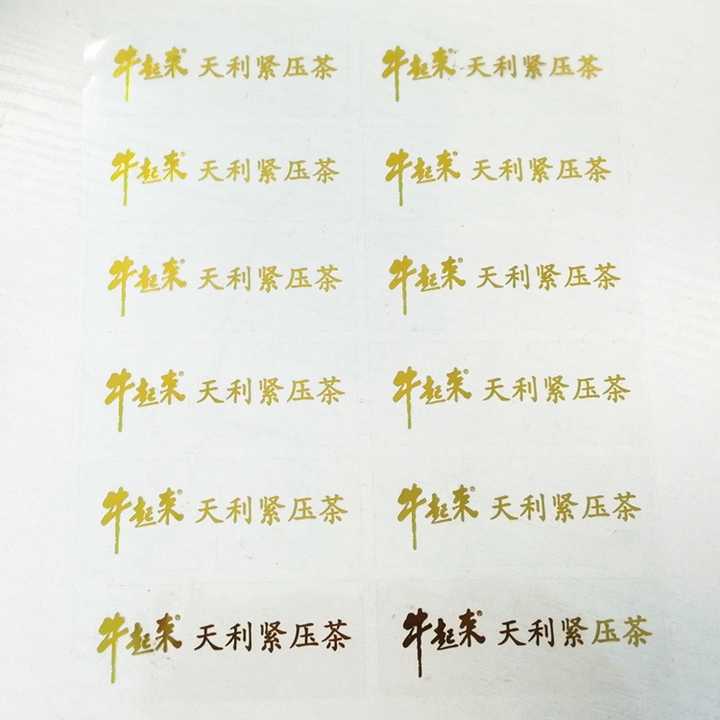 牛起来® 天利紧压茶 牛起来® 天利紧压茶
牛起来® 天利紧压茶 牛起来® 天利紧压茶
牛起来® 天利紧压茶 牛起来® 天利紧压茶
牛起来® 天利紧压茶 牛起来® 天利紧压茶
牛起来® 天利紧压茶 牛起来® 天利紧压茶
牛起来® 天利紧压茶 牛起来® 天利紧压茶